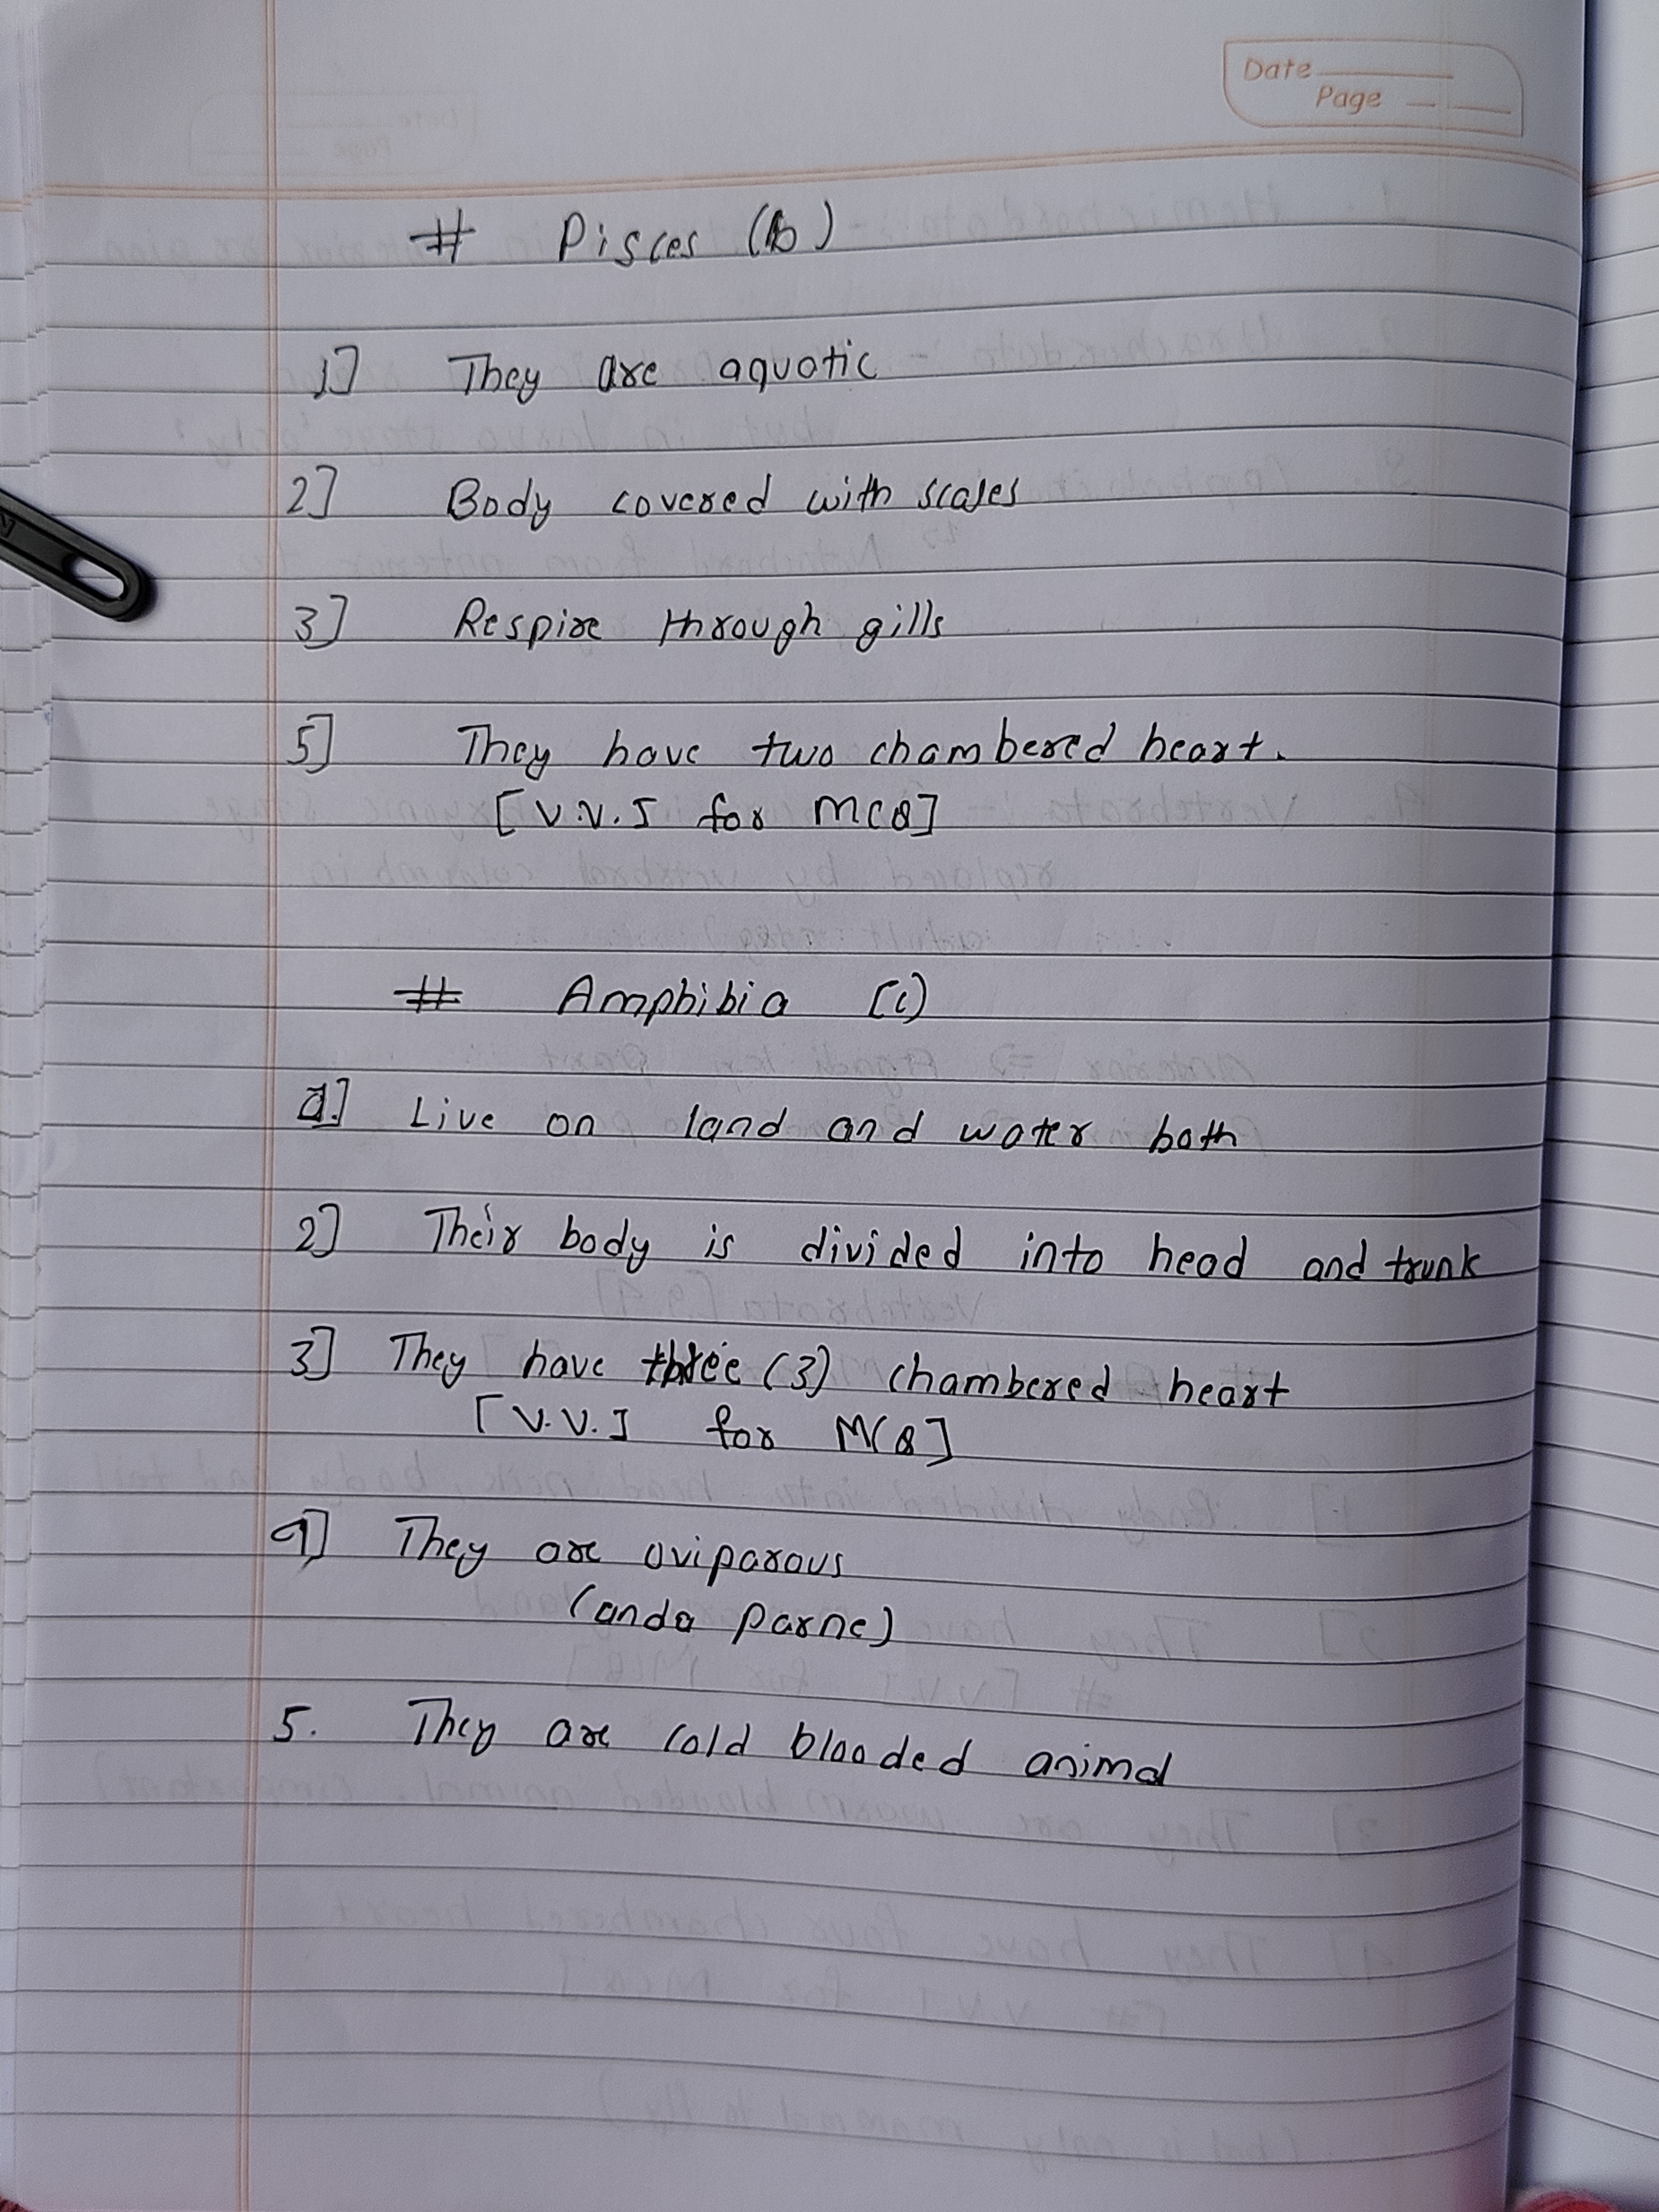 Date
Page
# Pisces (b)
1] They are aquatic
2] Body covered with scales
3] Respire through gills
5] They have two chambered heart.
[V.V.I for MCQ]
# Amphibia [c)
1] Live on land and water both
2] Their body is divided into head and trunk
3] They have three (3) chambered heart
[V.V.I for MCQ]
4] They are oviparous
(anda parne)
5. They are cold blooded animal